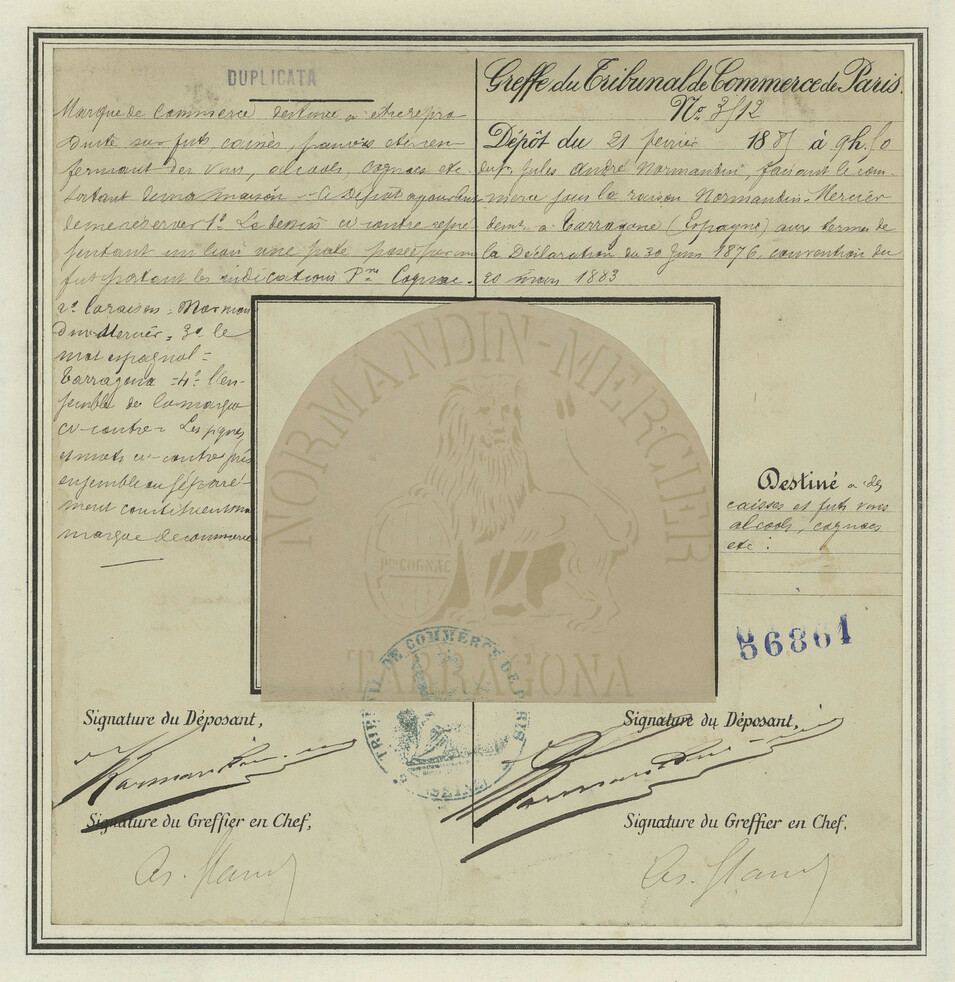 DUPLICATA
Marque de Commerce destinée a etre repro
duite sur futs, caisses, paniers etc ren
fermant des vins, alcools, cognacs etc.
sortant de ma maison - Ce Dépôt a pour but
de me réserver 1º. Le dessin ci contre repré
sentant un lion une pate posée sur un
fut portant les indications Pre Cognac.
2º la raison = Norman
din-Mercier. 3º le
mot espagnol =
Tarragona - 4º l'en-
semble de la marque
ci-contre - Les signes
et mots ci-contre pris
ensemble ou séparé-
ment constituent ma
marque de commerce
Greffe du Tribunal de Commerce de Paris.
No. 3512
Dépôt du 21 fevrier 188 à 9h.50
du Sr. Jules André Normandin, faisant le com
merce sous la raison Normandin-Mercier
demt. a Tarragone (Espagne) aux termes de
la Déclaration du 30 Juin 1876, convention du
20 mars 1883
NORMANDIN-MERCIER
COGNAC
TARRAGONA
Destiné a des
caisses et futs vins
alcools, cognacs
etc.
56801
TRIBUNAL DE COMMERCE DE PARIS
(SEINE)
Signature du Déposant,
Normandin
Signature du Greffier en Chef,
Signature du Déposant,
Normandin
Signature du Greffier en Chef.